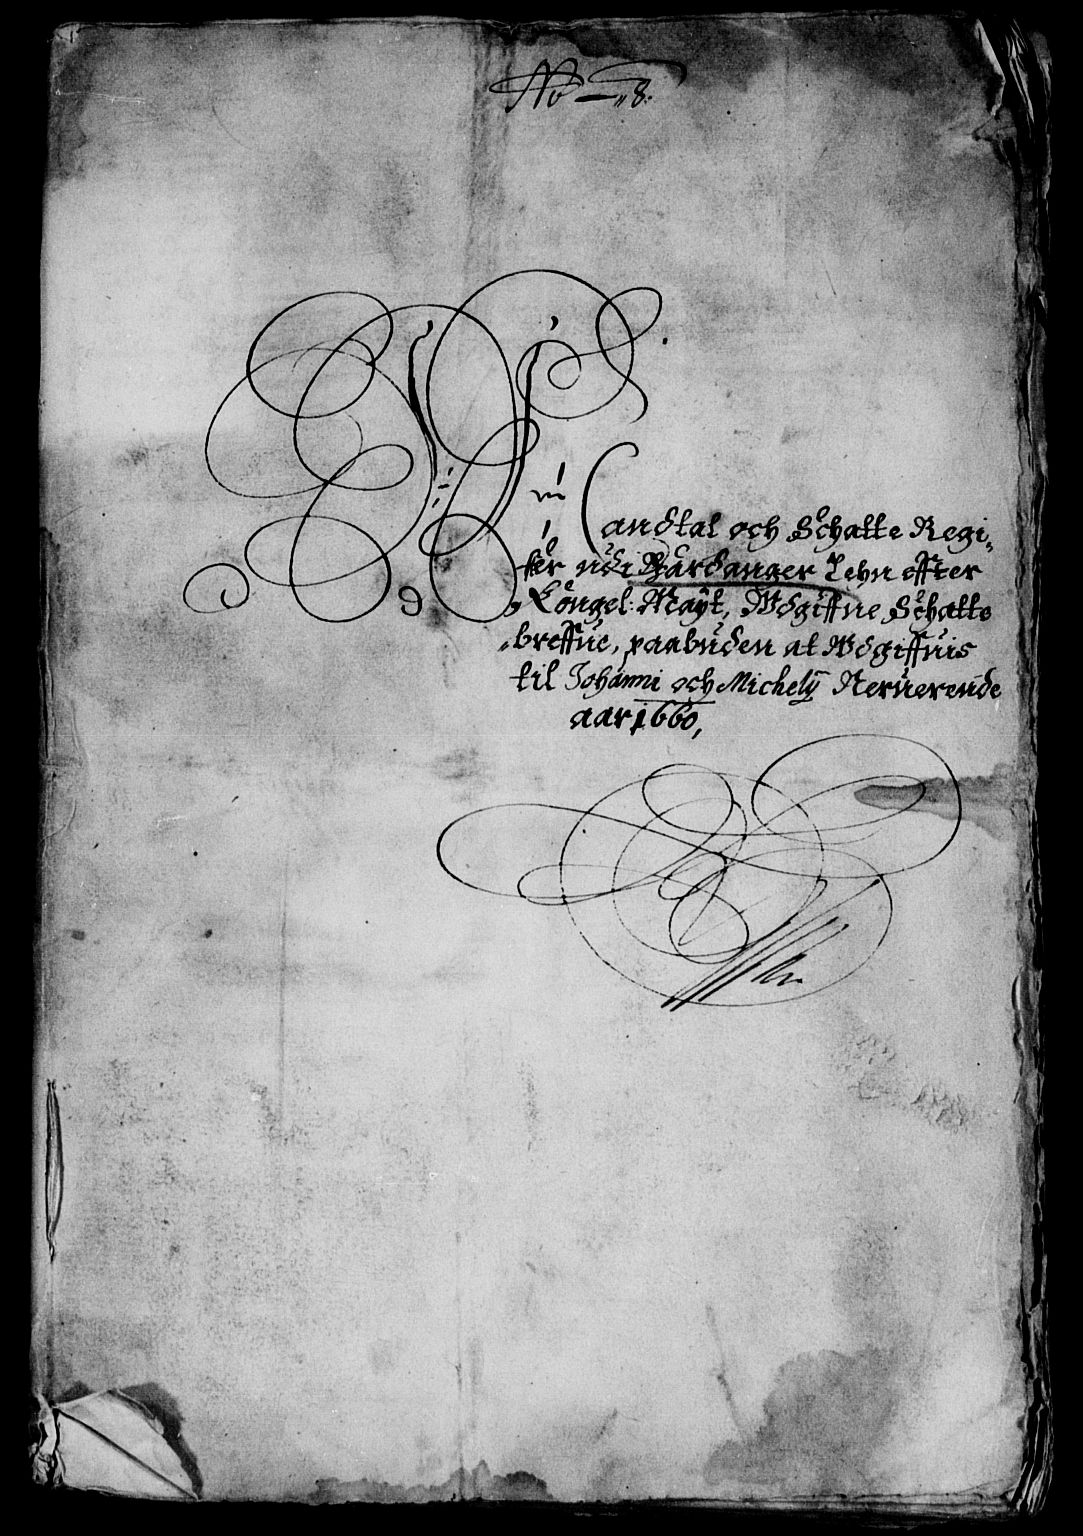 No - 8.
Mandtal och Schatte Regi-
ster udi Hardanger Lehn effter
Kongel: Mayt, Udgiffne Schatte
breffue, paabuden at Udgiffuis
til Johanni och Michely Nerverende
aar 1660,